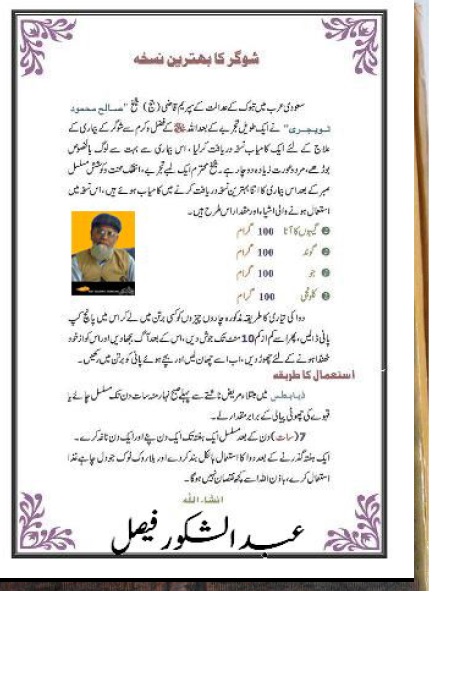 شوگر کا بہترین نسخہ
سعودی عرب میں تبوک کے عدالت کے سپریم قاضی (جج) شیخ "صالح محمود
تویجری" نے ایک طویل تجربے کے بعد اللہ ﷻ کے فضل و کرم سے شوگر کے بیماری کے
علاج کے لئے ایک کامیاب نسخہ دریافت کرلیا، اس بیماری سے بہت سے لوگ بالخصوص
بوڑھے، مرد و عورت زیادہ دوچار ہے۔ شیخ محترم ایک لمبے تجربے، انتھک محنت و کوشش مسلسل
صبر کے بعد اس بیماری کا اتنا بہترین نسخہ دریافت کرنے میں کامیاب ہوئے ہیں، اس نسخہ میں
استعمال ہونے والی اشیاء اور مقدار اس طرح ہیں۔
گیہوں کا آٹا 100 گرام
گوند 100 گرام
جو 100 گرام
کلونجی 100 گرام
دوا کی تیاری کا طریقہ مذکورہ چاروں چیزوں کو کسی برتن میں لے کر اس میں پانچ کپ
پانی ڈالیں، پھر اسے کم از کم 10 منٹ تک جوش دیں، اس کے بعد آگ بجھادیں اور اس کو از خود
ٹھنڈا ہونے کے لئے چھوڑ دیں، اب اسے چھان لیں اور بچے ہوئے پانی کو برتن میں رکھیں۔
استعمال کا طریقہ
ذیابطس میں مبتلا مریض ناشتے سے پہلے صبح نہار منہ سات دن تک مسلسل چائے یا
قہوے کی چھوٹی پیالی کے برابر مقدار لے۔
7 (سات) دن کے بعد مسلسل ایک ہفتہ تک ایک دن پئے اور ایک دن ناغہ کرے۔
ایک ہفتہ گذرنے کے بعد دوا کا استعمال بالکل بند کردے اور بلا روک ٹوک جو دل چاہے غذا
استعمال کرے، باذن اللہ اسے کچھ نقصان نہیں ہوگا۔
انشاء اللہ
عبدالشکور فیصل